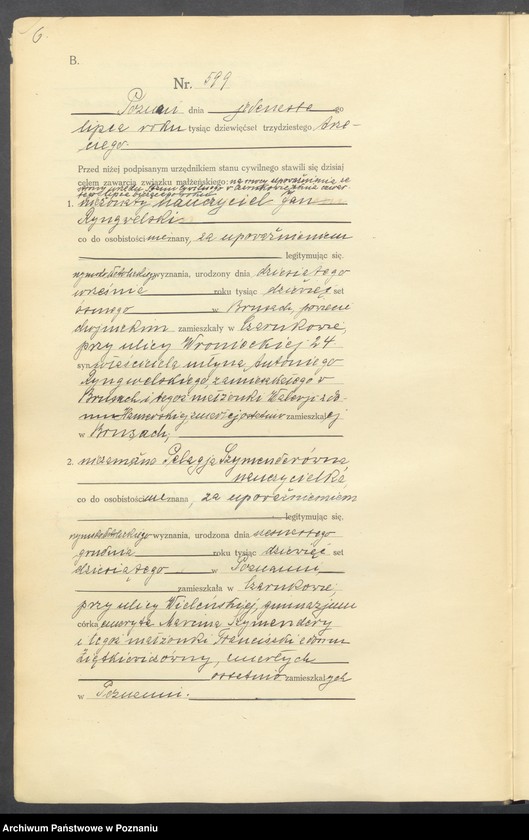 6.
B.
Nr. 599
Poznań dnia jedenasto go
lipca roku tysiąc dziewięćset trzydziestego trze-
ciego.
Przed niżej podpisanym urzędnikiem stanu cywilnego stawili się dzisiaj
celem zawarcia związku małżeńskiego: na mocy upoważnienia ze
strony urzędu stanu cywilnego w Czarnkowie z dnia
lipca
1. nieżonaty nauczyciel Jan
Ryngwelski
co do osobistości nieznany, za upoważnieniem
legitymując się.
rzymskokatolickiego wyznania, urodzony dnia dziesiątego
września roku tysiąc dziewięć set
ósmego w Brusach, powiecie
chojnickim zamieszkały w Czarnkowie,
przy ulicy Wronieckiej 24
syn właściciela młyna Antoniego
Ryngwelskiego, zamieszkałego w
Brusach i tegoż małżonki Walerji z do-
mu zmarłej ostatnio zamieszkałej
w Brusach,
2. niezamężna Pelagja Szymenderówna
nauczycielka
co do osobistości nieznana, za upoważnieniem
legitymując się.
rzymskokatolickiego wyznania, urodzona dnia czwartego
grudnia roku tysiąc dziewięć set
dziesiątego w Poznaniu
zamieszkała w Czarnkowie,
przy ulicy Wieleńskiej, gimnazjum
córka emeryta Marcina Szymendery
i tegoż małżonki Franciszki z domu
Ziętkiewiczówny, zmarłych
ostatnio zamieszkałych
w Poznaniu.
Archiwum Państwowe w Poznaniu